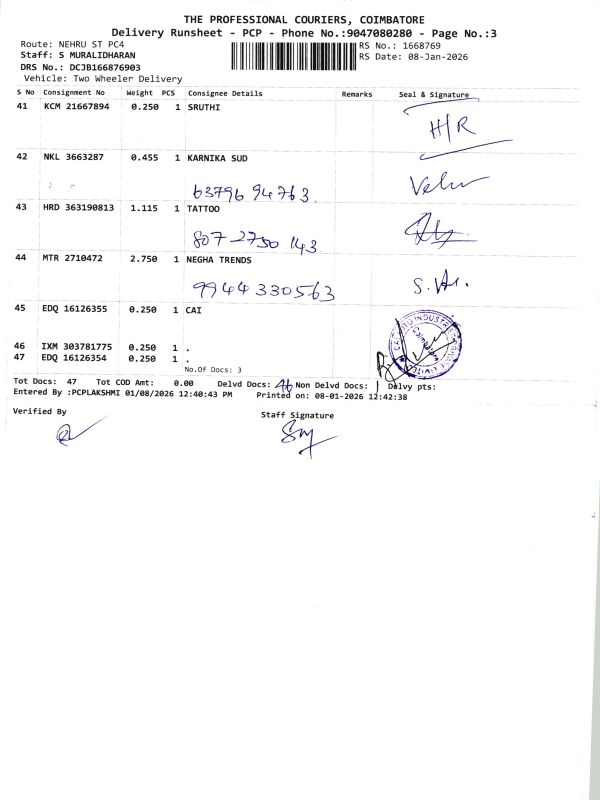 THE PROFESSIONAL COURIERS, COIMBATORE
Delivery Runsheet - PCP - Phone No.:9047080280 - Page No.:3
Route: NEHRU ST PC4
Staff: S MURALIDHARAN
DRS No.: DCJB166876903
Vehicle: Two Wheeler Delivery
RS No.: 1668769
RS Date: 08-Jan-2026
S No Consignment No Weight PCS Consignee Details Remarks Seal & Signature
41 KCM 21667894 0.250 1 SRUTHI H/R
42 NKL 3663287 0.455 1 KARNIKA SUD
63796 94763
43 HRD 363190813 1.115 1 TATTOO
807 2750 143
44 MTR 2710472 2.750 1 NEGHA TRENDS
9944 330563
45 EDQ 16126355 0.250 1 CAI
46 IXM 303781775 0.250 1 .
47 EDQ 16126354 0.250 1 .
No.Of Docs: 3
Tot Docs: 47 Tot COD Amt: 0.00 Delvd Docs: 46 Non Delvd Docs: 1 Delvy pts:
Entered By :PCPLAKSHMI 01/08/2026 12:40:43 PM Printed on: 08-01-2026 12:42:38
Verified By
Staff Signature